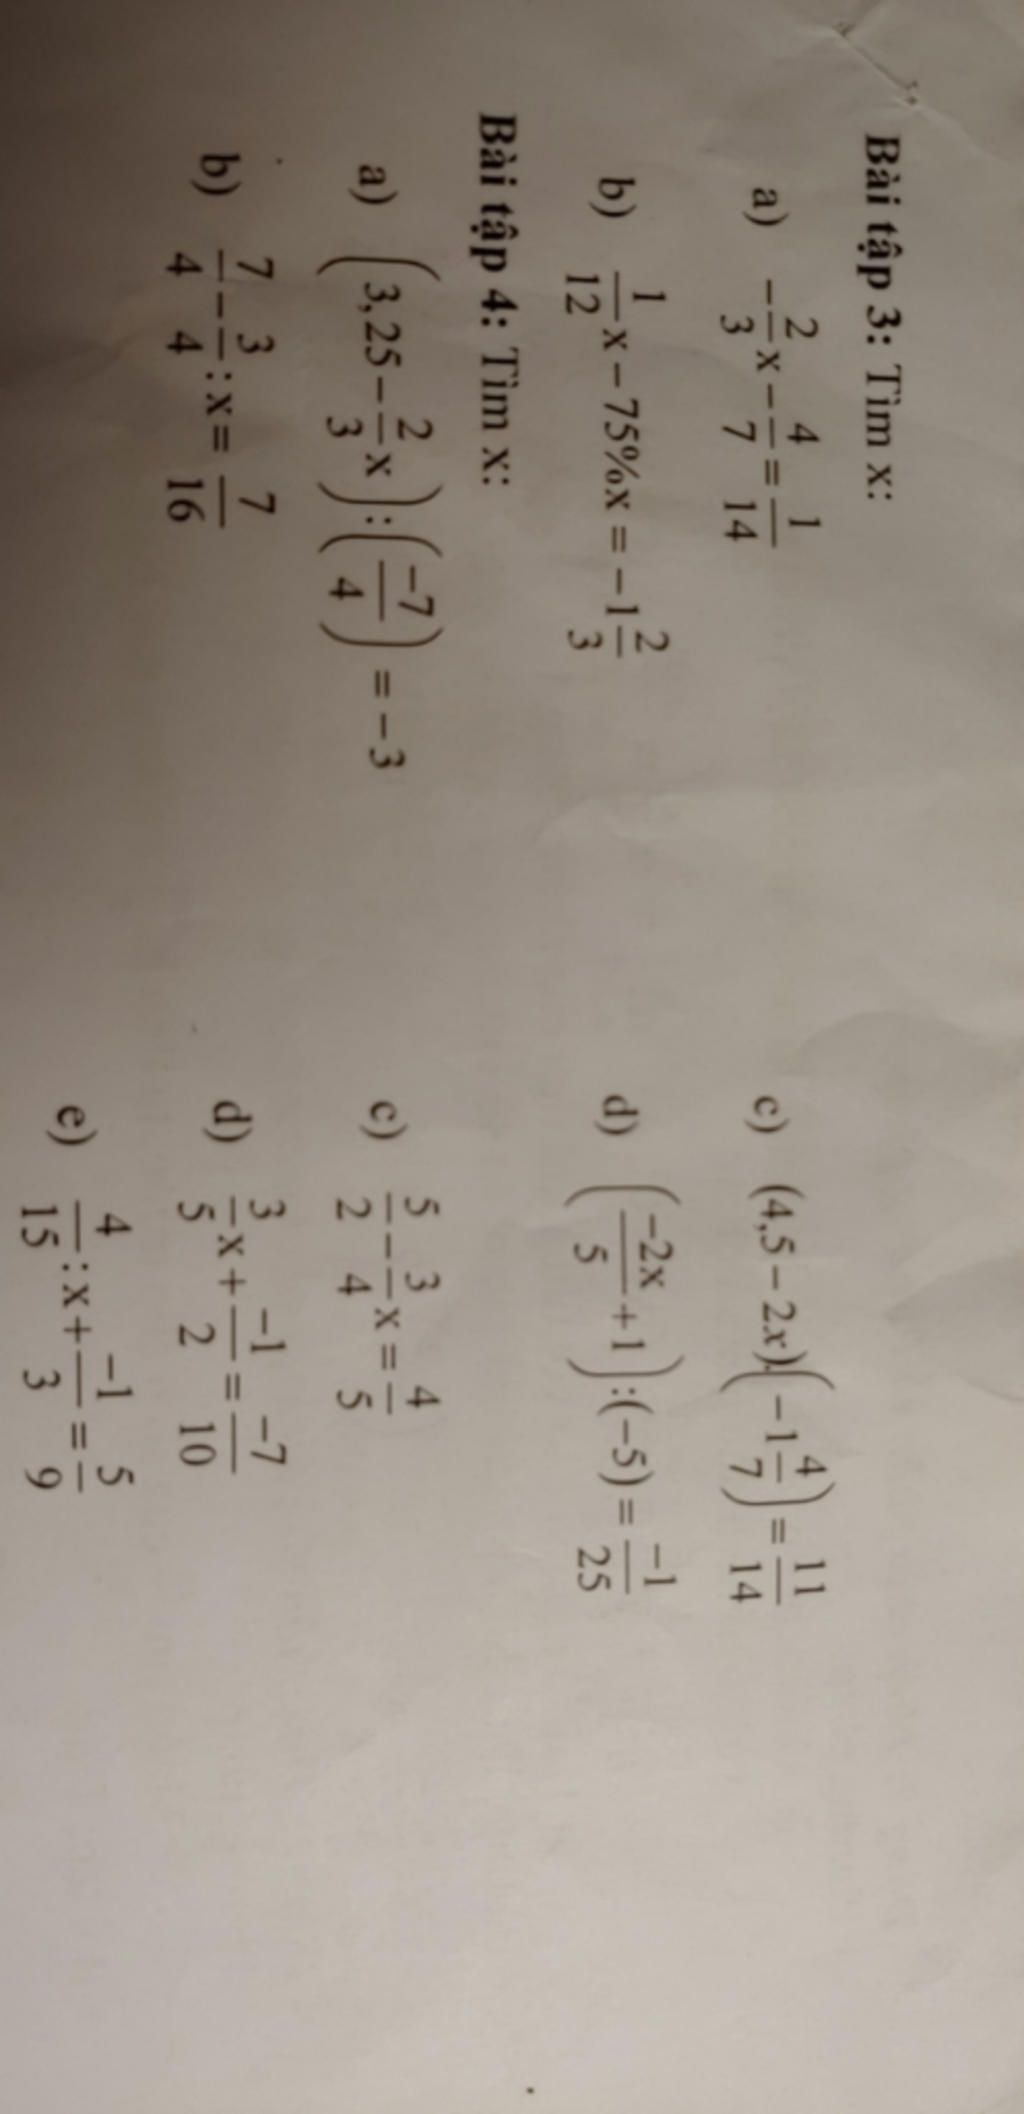 Bài tập 3: Tìm x:
a) -2/3 x - 4/7 = 1/14
c) (4,5 - 2x).(-1 4/7) = 11/14
b) 1/12 x - 75%x = -1 2/3
d) (-2x/5 + 1) : (-5) = -1/25
Bài tập 4: Tìm x:
a) (3,25 - 2/3 x) : (-7/4) = -3
c) 5/2 - 3/4 x = 4/5
b) 7/4 - 3/4 : x = 7/16
d) 3/5 x + -1/2 = -7/10
e) 4/15 : x + -1/3 = 5/9